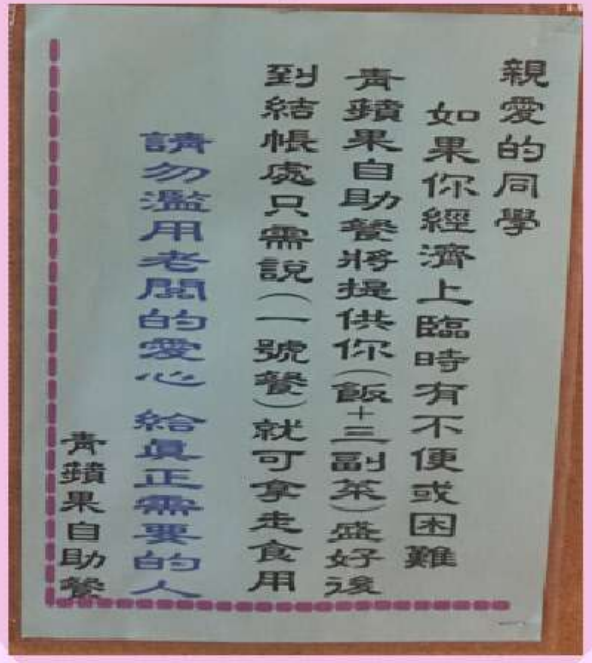 親愛的同學
如果你經濟上臨時有不便或困難
青蘋果自助餐將提供你(飯+三副菜)盛好後
到結帳處只需說(一號餐)就可拿走食用
請勿濫用老闆的愛心 給真正需要的人
青蘋果自助餐